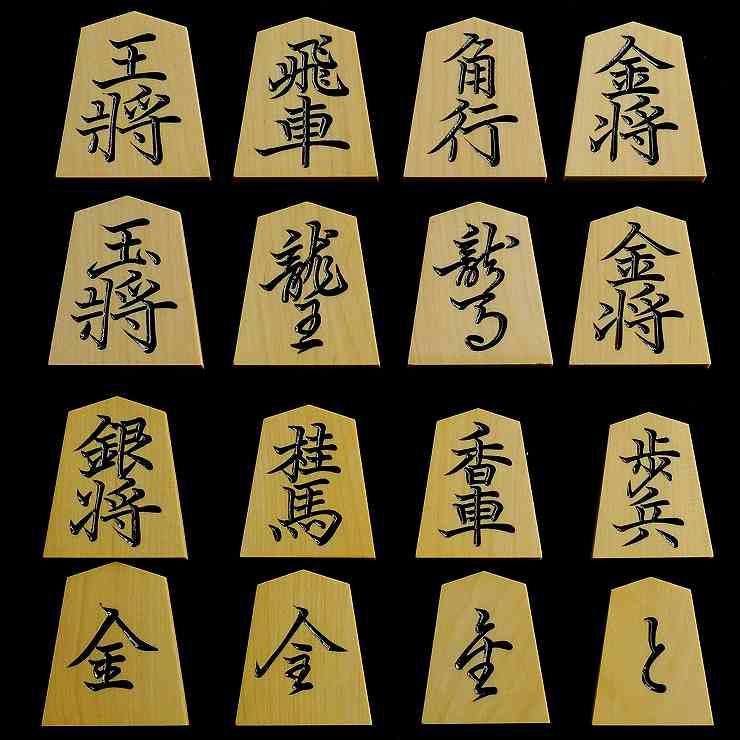 王將
飛車
角行
金将
玉將
龍王
龍馬
金将
銀将
桂馬
香車
歩兵
金
全
金
と